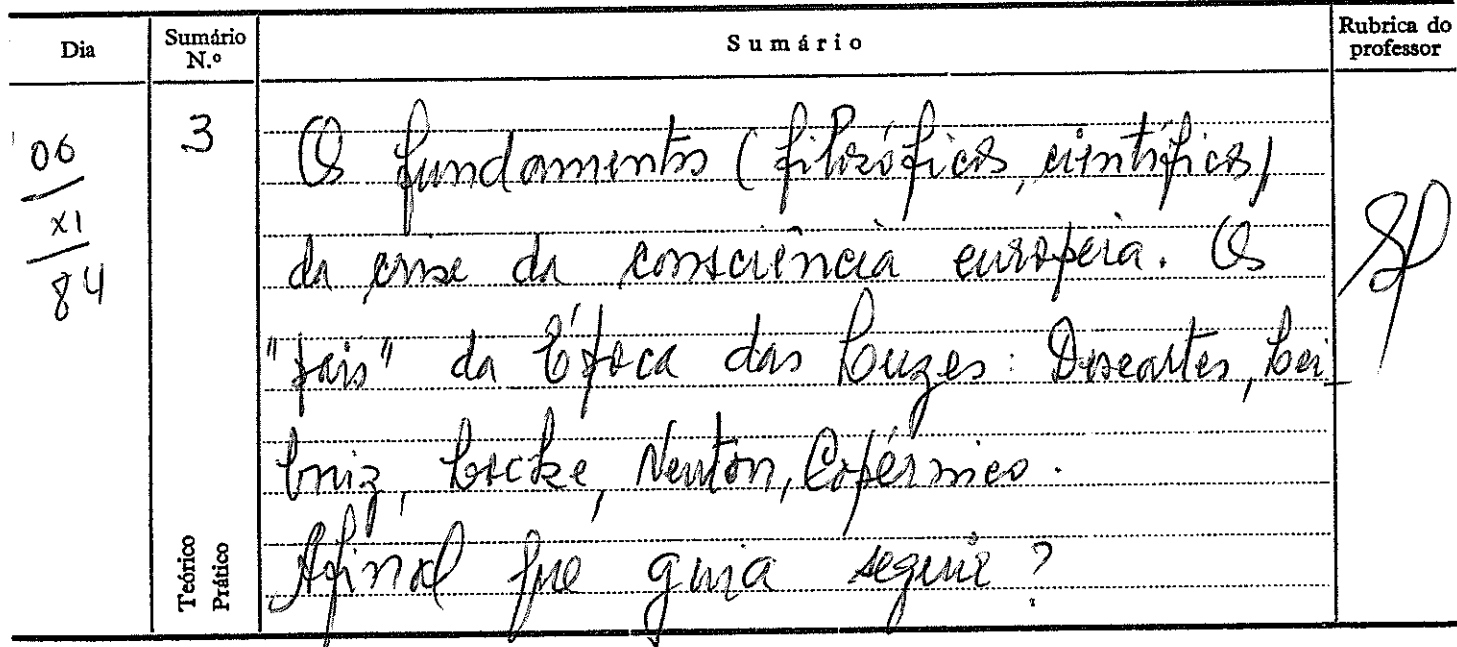 Dia
Sumário N.º
Sumário
Rubrica do professor
06
XI
84
3
Os fundamentos (filosóficos, científicos)
da crise da consciência europeia. Os
"pais" da Época das Luzes: Descartes, Lei
bniz, Locke, Newton, Copérnico.
Afinal que guia seguir?
Teórico
Prático